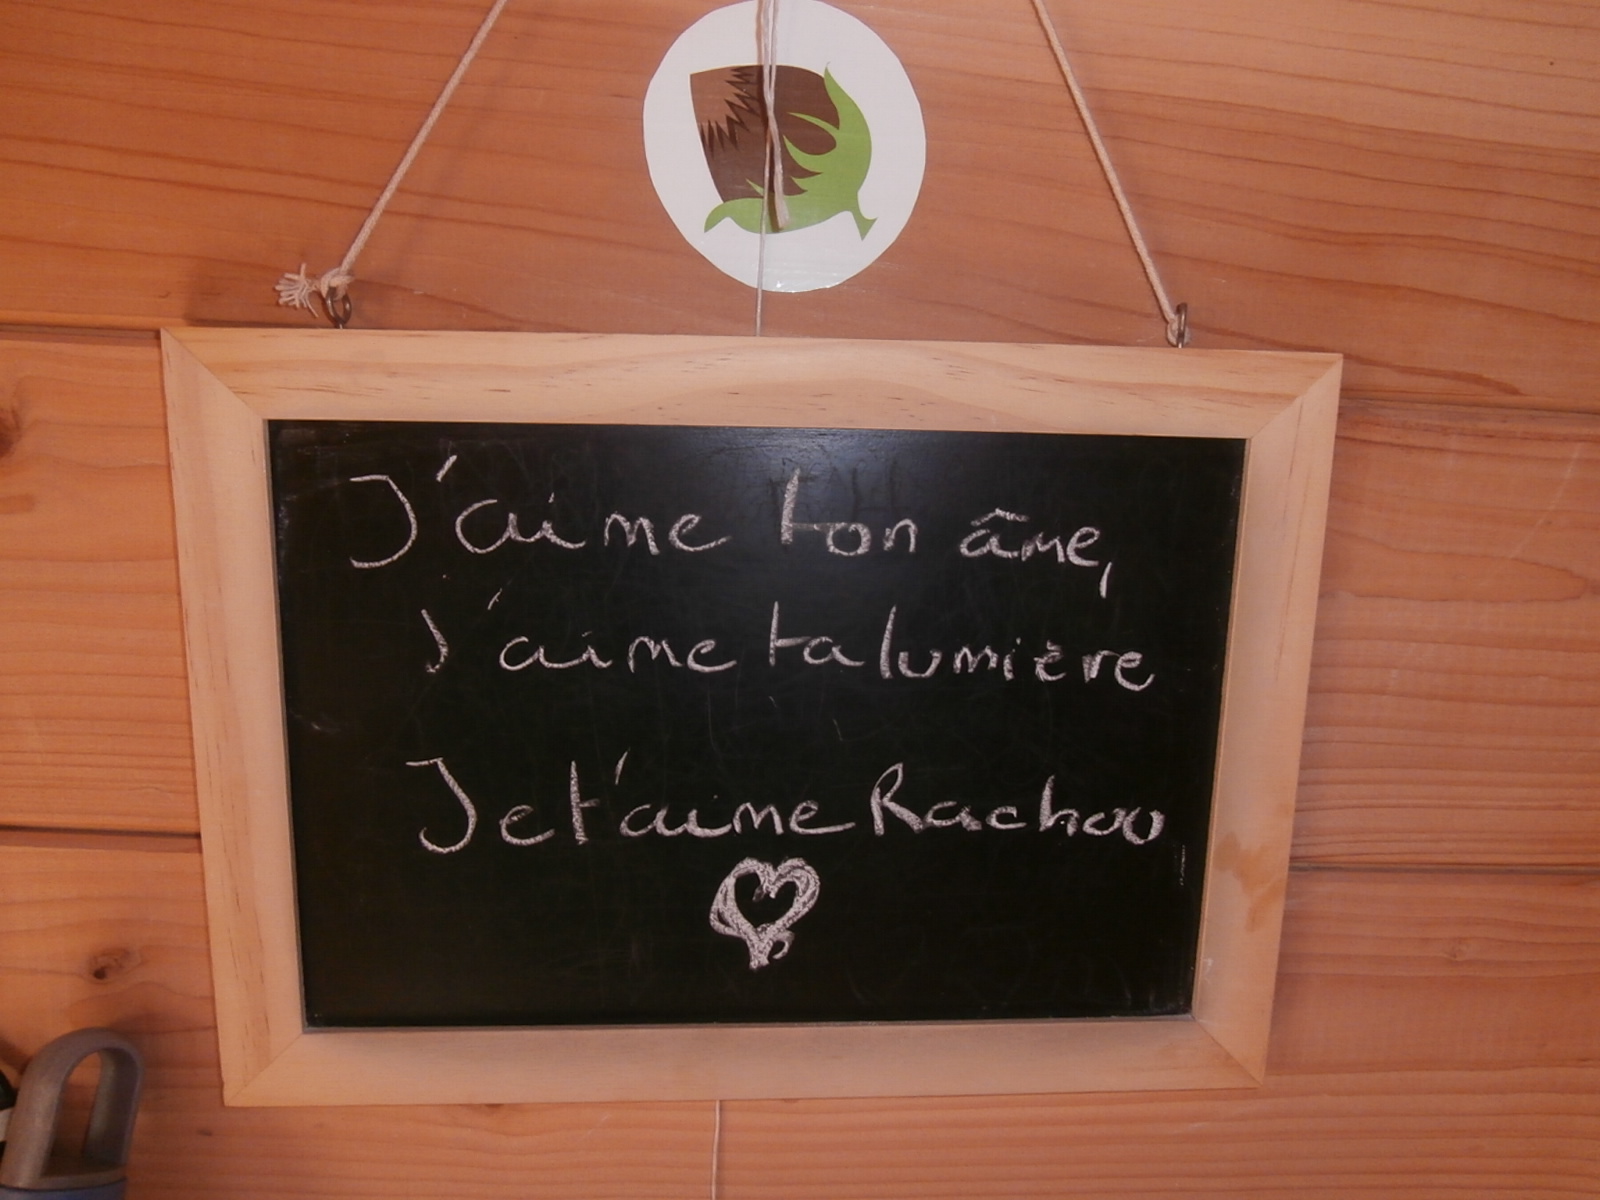 J'aime ton âme,
J'aime ta lumière
Je t'aime Rachou